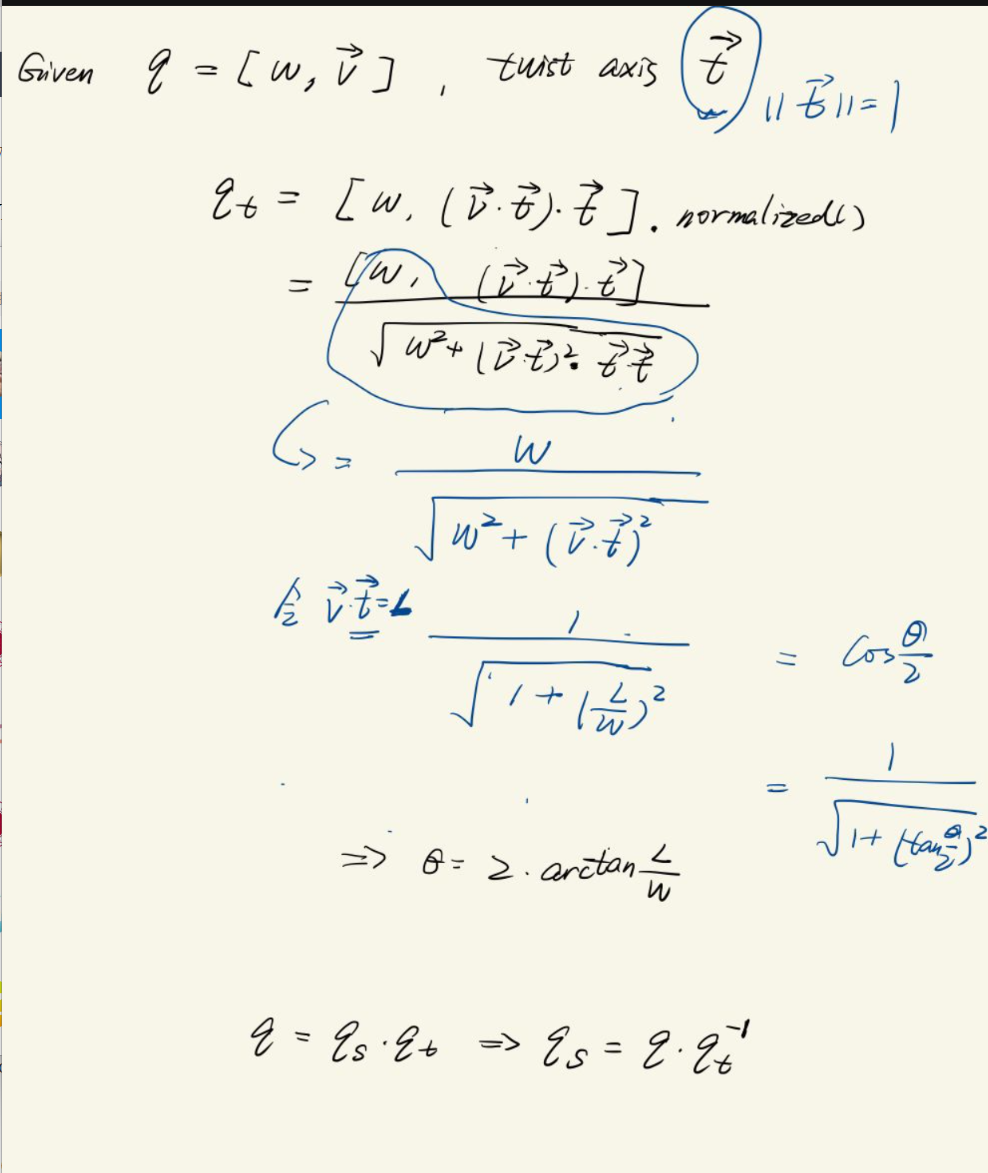 Given q = [w, v⃗] , twist axis t⃗ , ||t⃗|| = 1
q_t = [w, (v⃗·t⃗)·t⃗] . normalized()
= [w, (v⃗·t⃗)·t⃗] / √(w² + (v⃗·t⃗)²· t⃗ t⃗)
↪ = w / √(w² + (v⃗·t⃗)²)
v⃗·t⃗ = L 1 / √(1 + (L/w)²) = cos θ/2
= 1 / √(1 + (tan θ/2)²)
=> θ = 2 · arctan L/w
q = q_s · q_t => q_s = q · q_t⁻¹